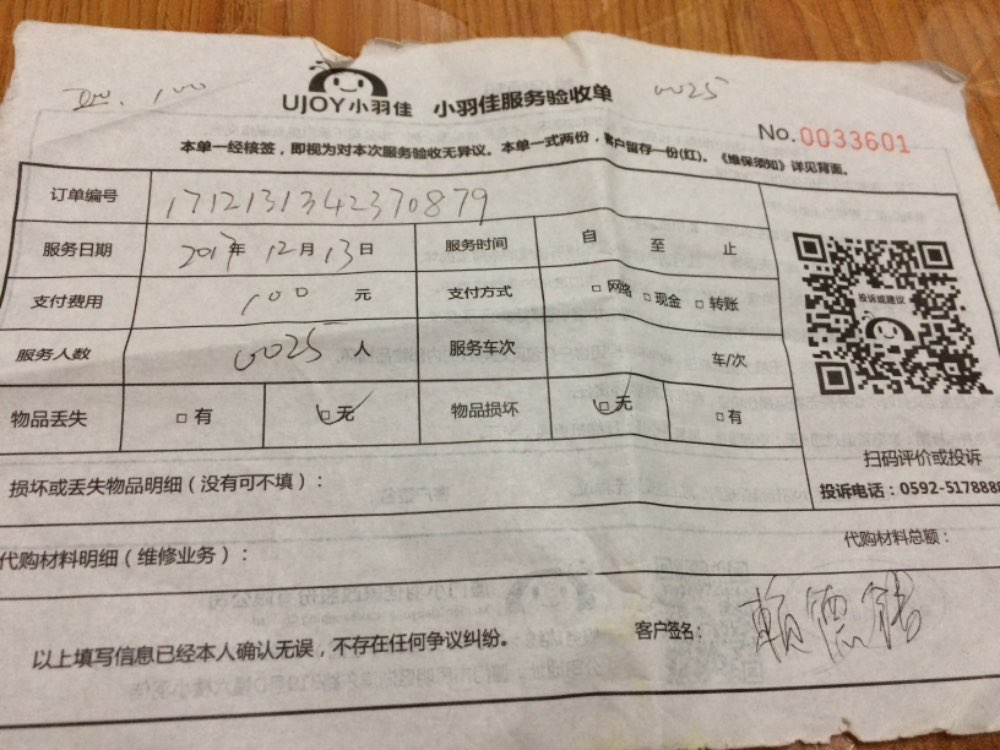 100 0025
UJOY小羽佳 小羽佳服务验收单
No.0033601
本单一经核签，即视为对本次服务验收无异议。本单一式两份，客户留存一份(红)。《维保须知》详见背面。
订单编号 1712131342370879
服务日期 2017年 12月 13日 服务时间 自 至 止
支付费用 100 元 支付方式 □网络 □现金 □转账
服务人数 0025 人 服务车次 车/次
投诉或建议
物品丢失 □有 □无 物品损坏 □无 □有
扫码评价或投诉
损坏或丢失物品明细（没有可不填）：
投诉电话：0592-5178888
代购材料明细（维修业务）： 代购材料总额：
以上填写信息已经本人确认无误，不存在任何争议纠纷。 客户签名： 赖德铭